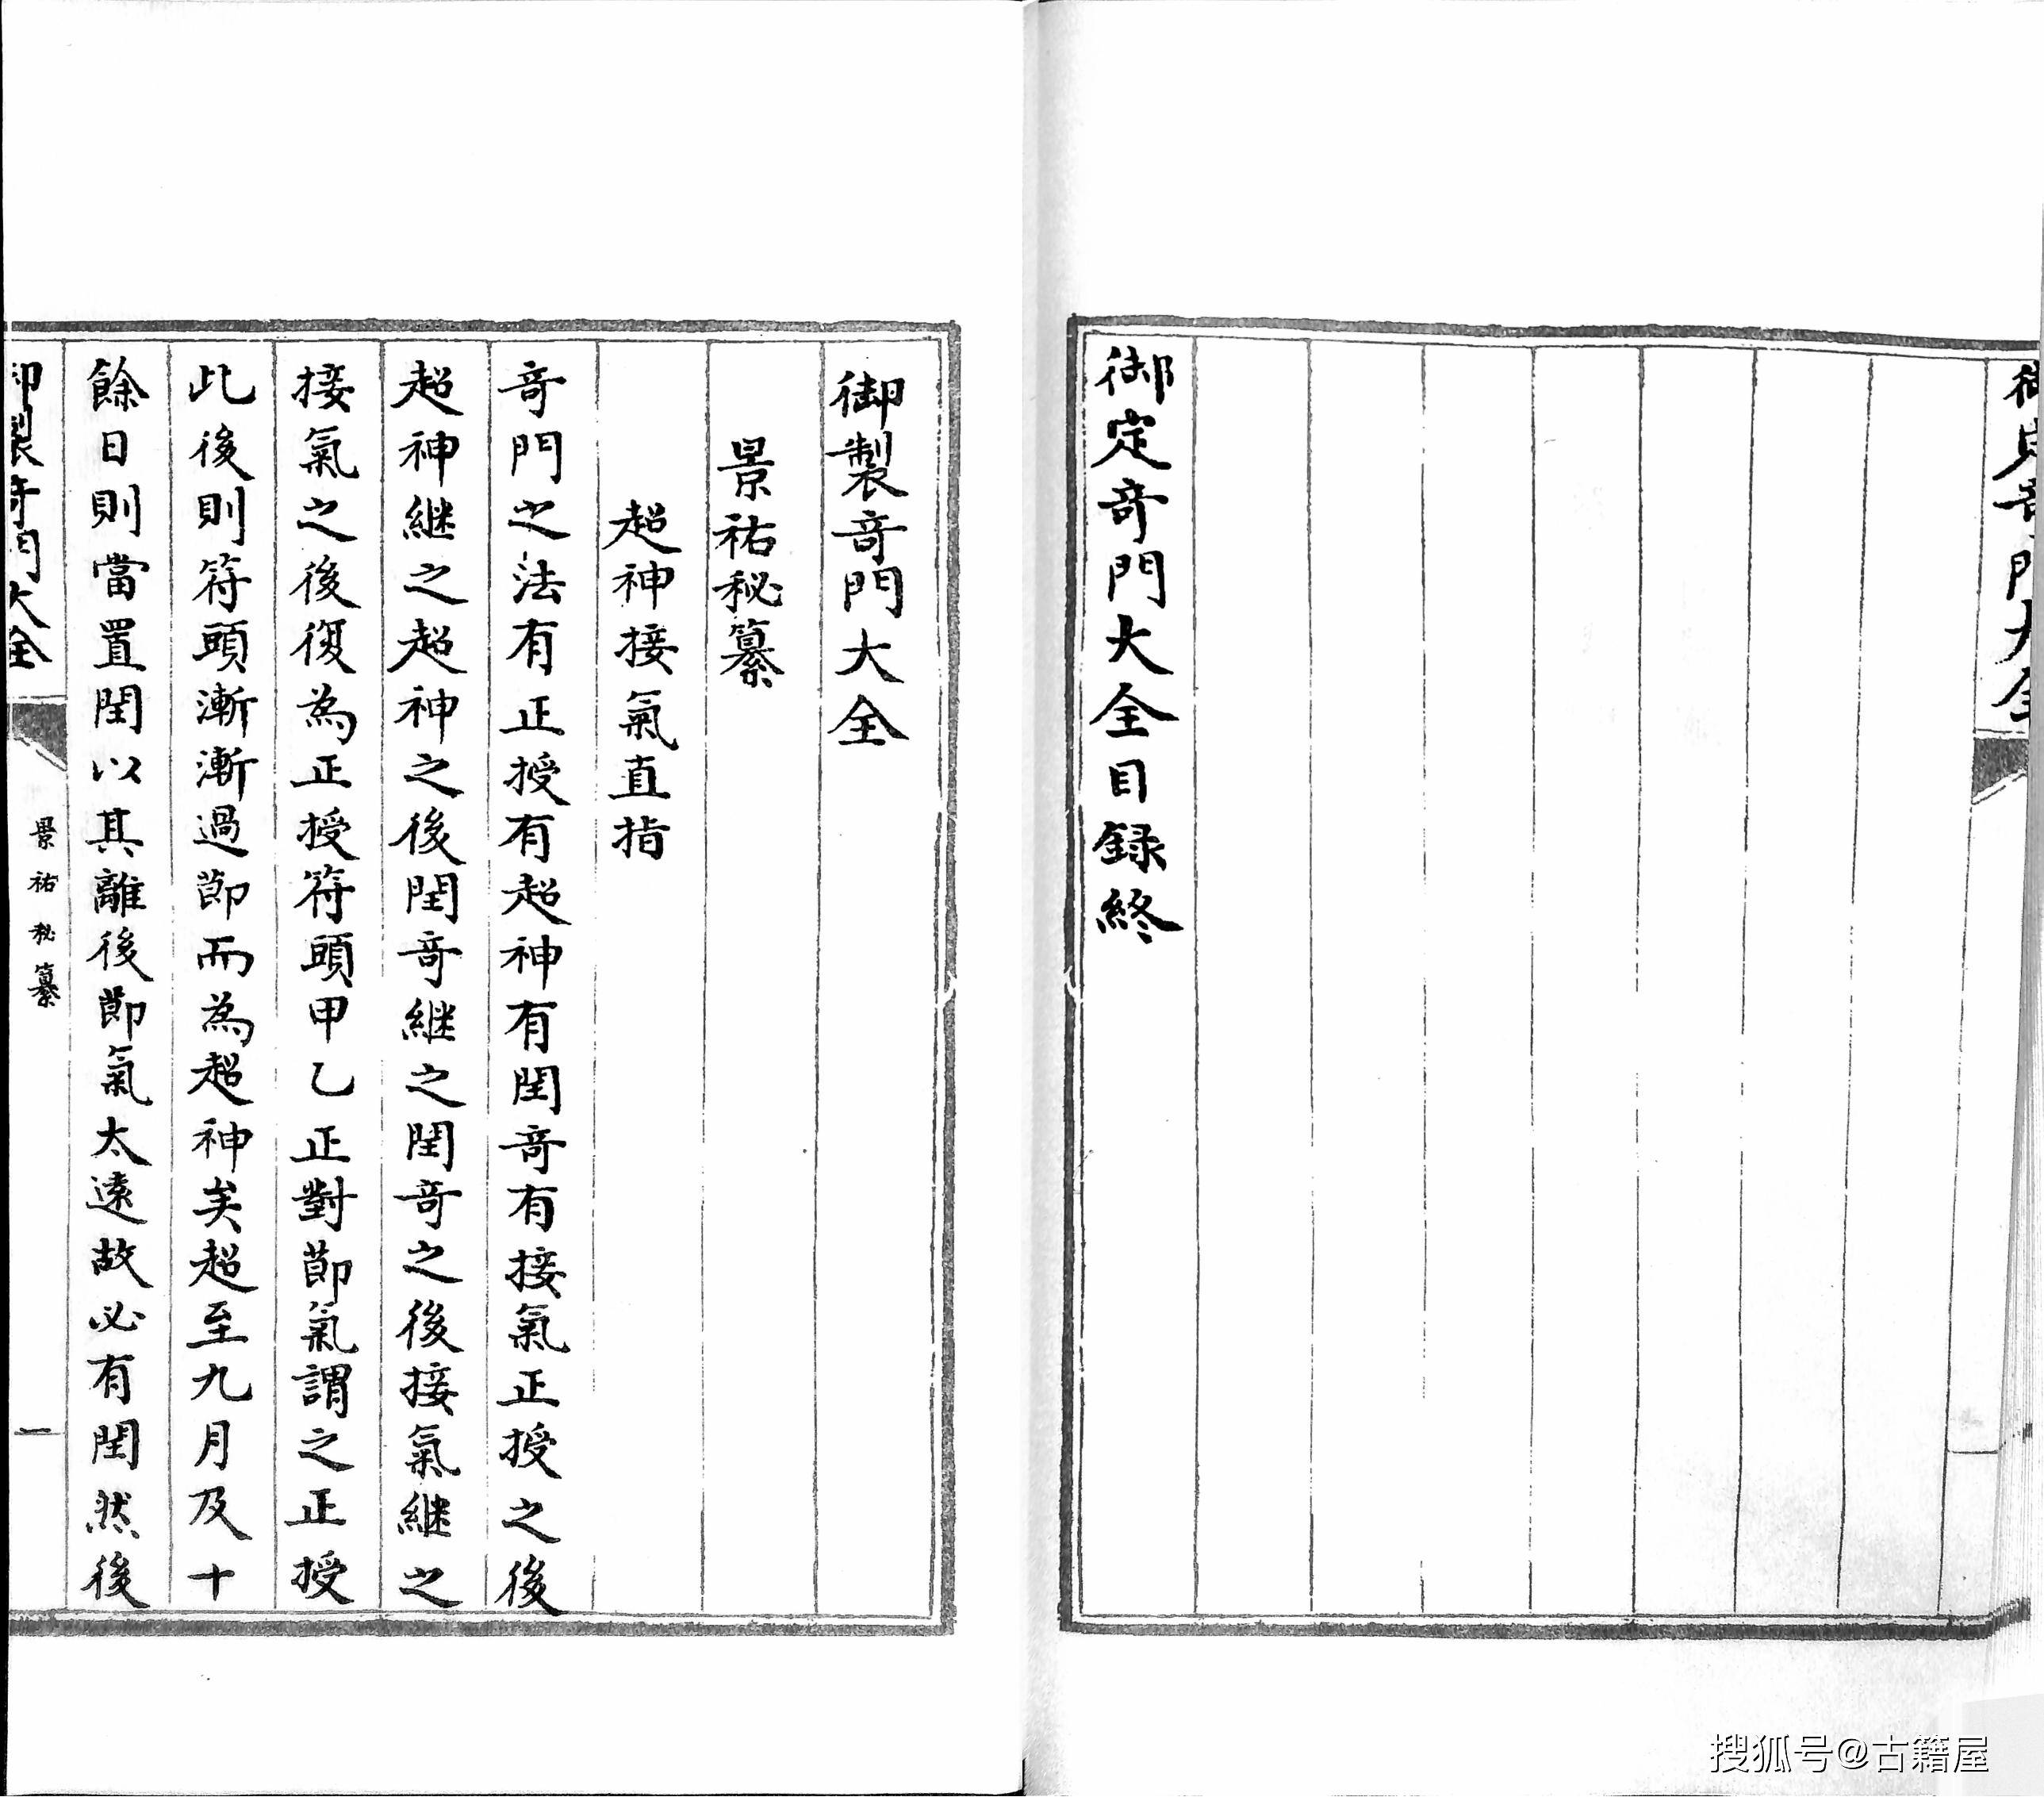 御定奇門大全
御定奇門大全目録終
御製奇門大全
景祐秘纂
超神接氣直指
奇門之法有正授有超神有閏奇有接氣正授之後
超神継之超神之後閏奇継之閏奇之後接氣継之
接氣之後復為正授符頭甲乙正對節氣謂之正授
此後則符頭漸漸過節而為超神矣超至九月及十
餘日則當置閏以其離後節氣太遠故必有閏然後
御製奇門大全
景祐秘纂
一
搜狐号@古籍屋